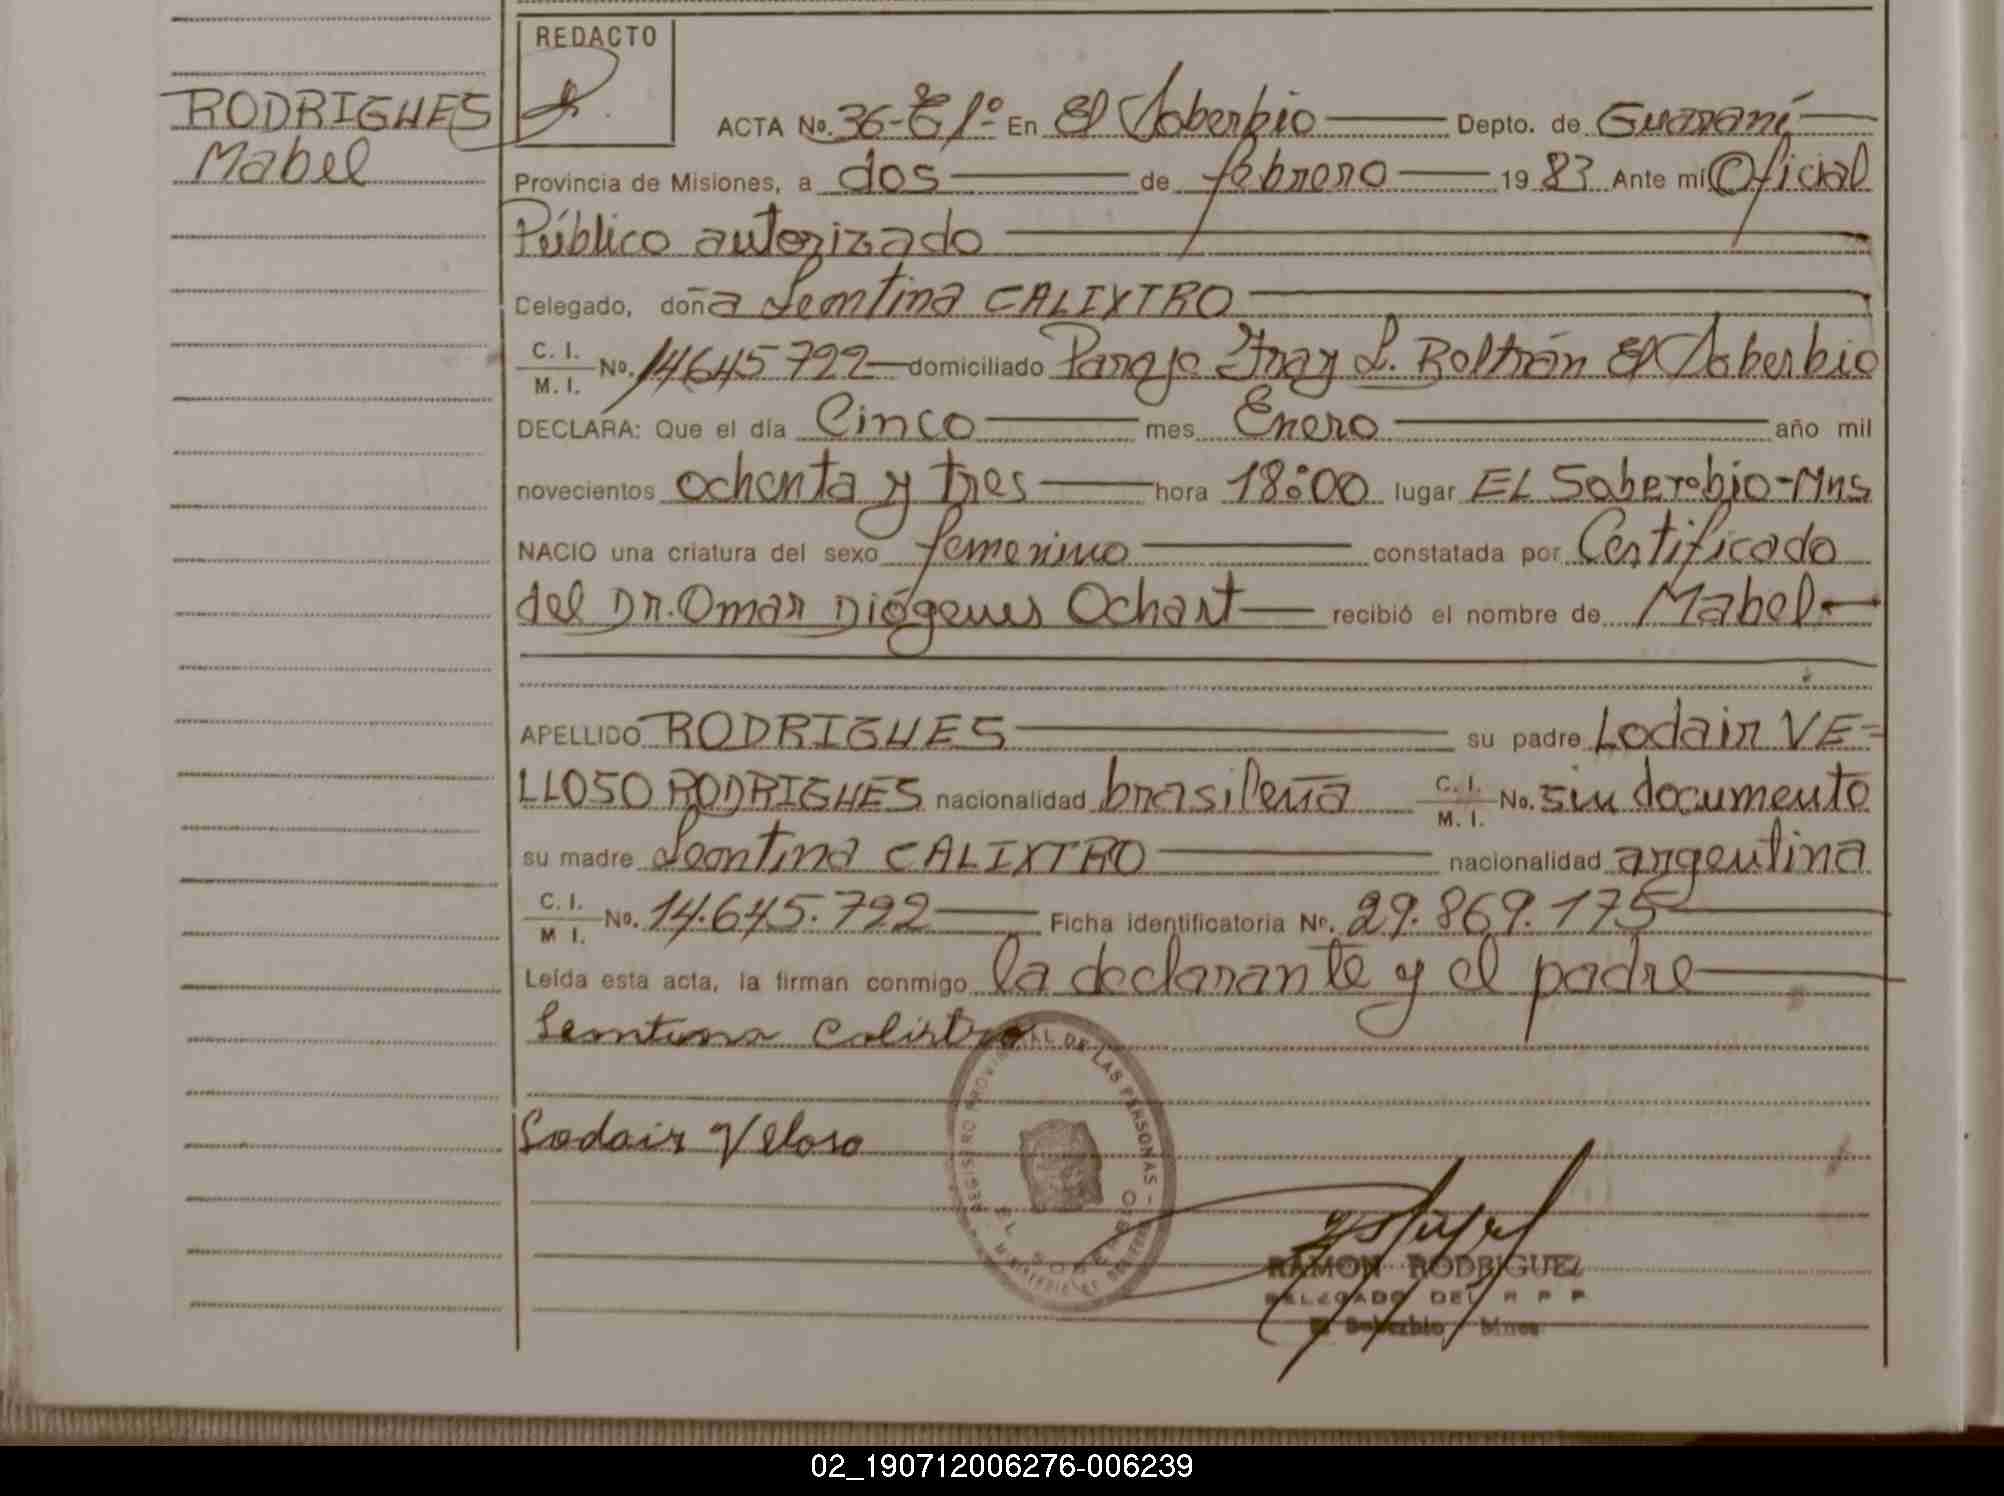 REDACTO
RODRIGUES
Mabel
ACTA No. 36-Tº 1º En El Soberbio Depto. de Guaraní
Provincia de Misiones, a dos de febrero 19 83 Ante mi Oficial
Público autorizado
Delegado, doña Leontina CALIXTRO
C. I.
M. I. No. 14645722 domiciliado Paraje Fray L. Boltrán El Soberbio
DECLARA: Que el día Cinco mes Enero año mil
novecientos ochenta y tres hora 18:00 lugar EL Soberbio-Mns
NACIO una criatura del sexo femenino constatada por Certificado
del Dr. Omar Diógenes Ochart recibió el nombre de Mabel
APELLIDO RODRIGUES su padre Lodair VE-
LLOSO RODRIGUES nacionalidad brasileña C. I.
M. I. No. sin documento
su madre Leontina CALIXTRO nacionalidad argentina
C. I.
M I. No. 14.645.722 Ficha identificatoria Nº. 29.869.175
Leída esta acta, la firman conmigo la declarante y el padre
Leontina Calistro
Lodair Veloso
REGISTRO PROVINCIAL DE LAS PERSONAS -
EL SOBERBIO
RAMON RODRIGUEZ
DELEGADO DEL R P P
El Soberbio Mnes
02_190712006276-006239